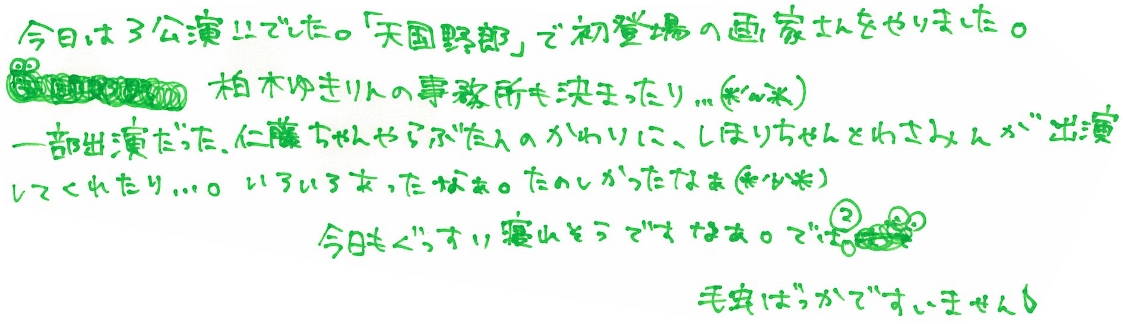 今日は3公演!!でした。「天国野郎」で初登場の画家さんをやりました。
柏木ゆきりんの事務所も決まったり...(*´ω`*)
一部出演だった、仁藤ちゃんやらぶたんのかわりに、しほりちゃんとわさみんが出演
してくれたり...。いろいろあったなぁ。たのしかったなぁ(*´ω`*)
今日もぐっすり寝れそうですなあ。では。②
毛虫ばっかですいません♪